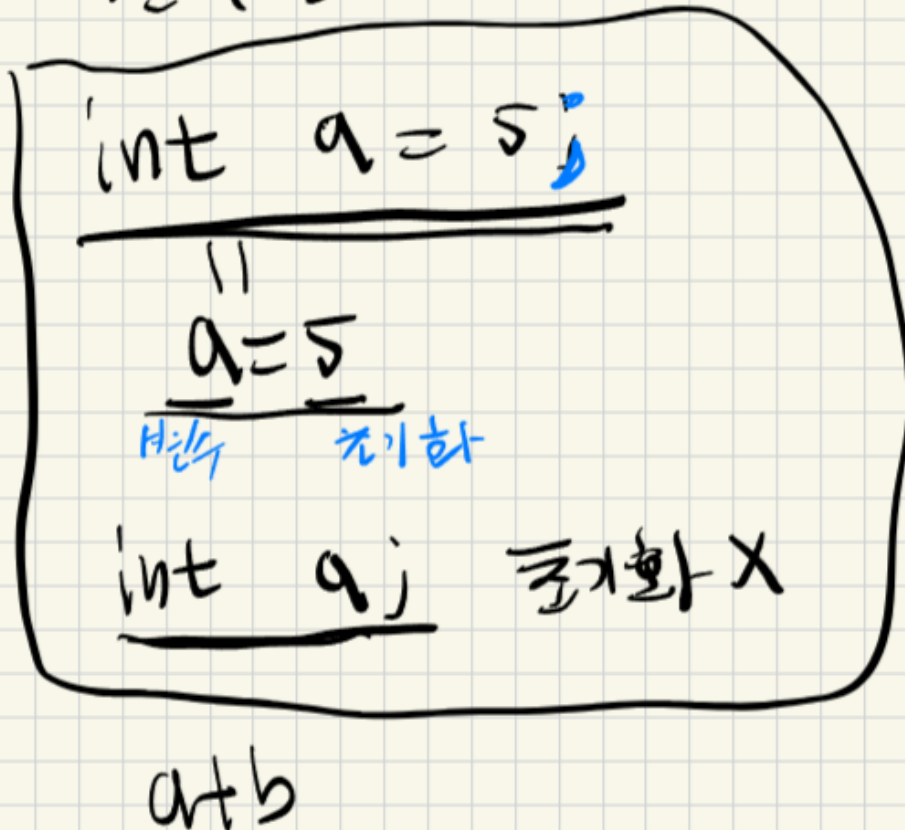 int a = 5;
||
a = 5
변수 초기화
int a; 초기화 X
a+b